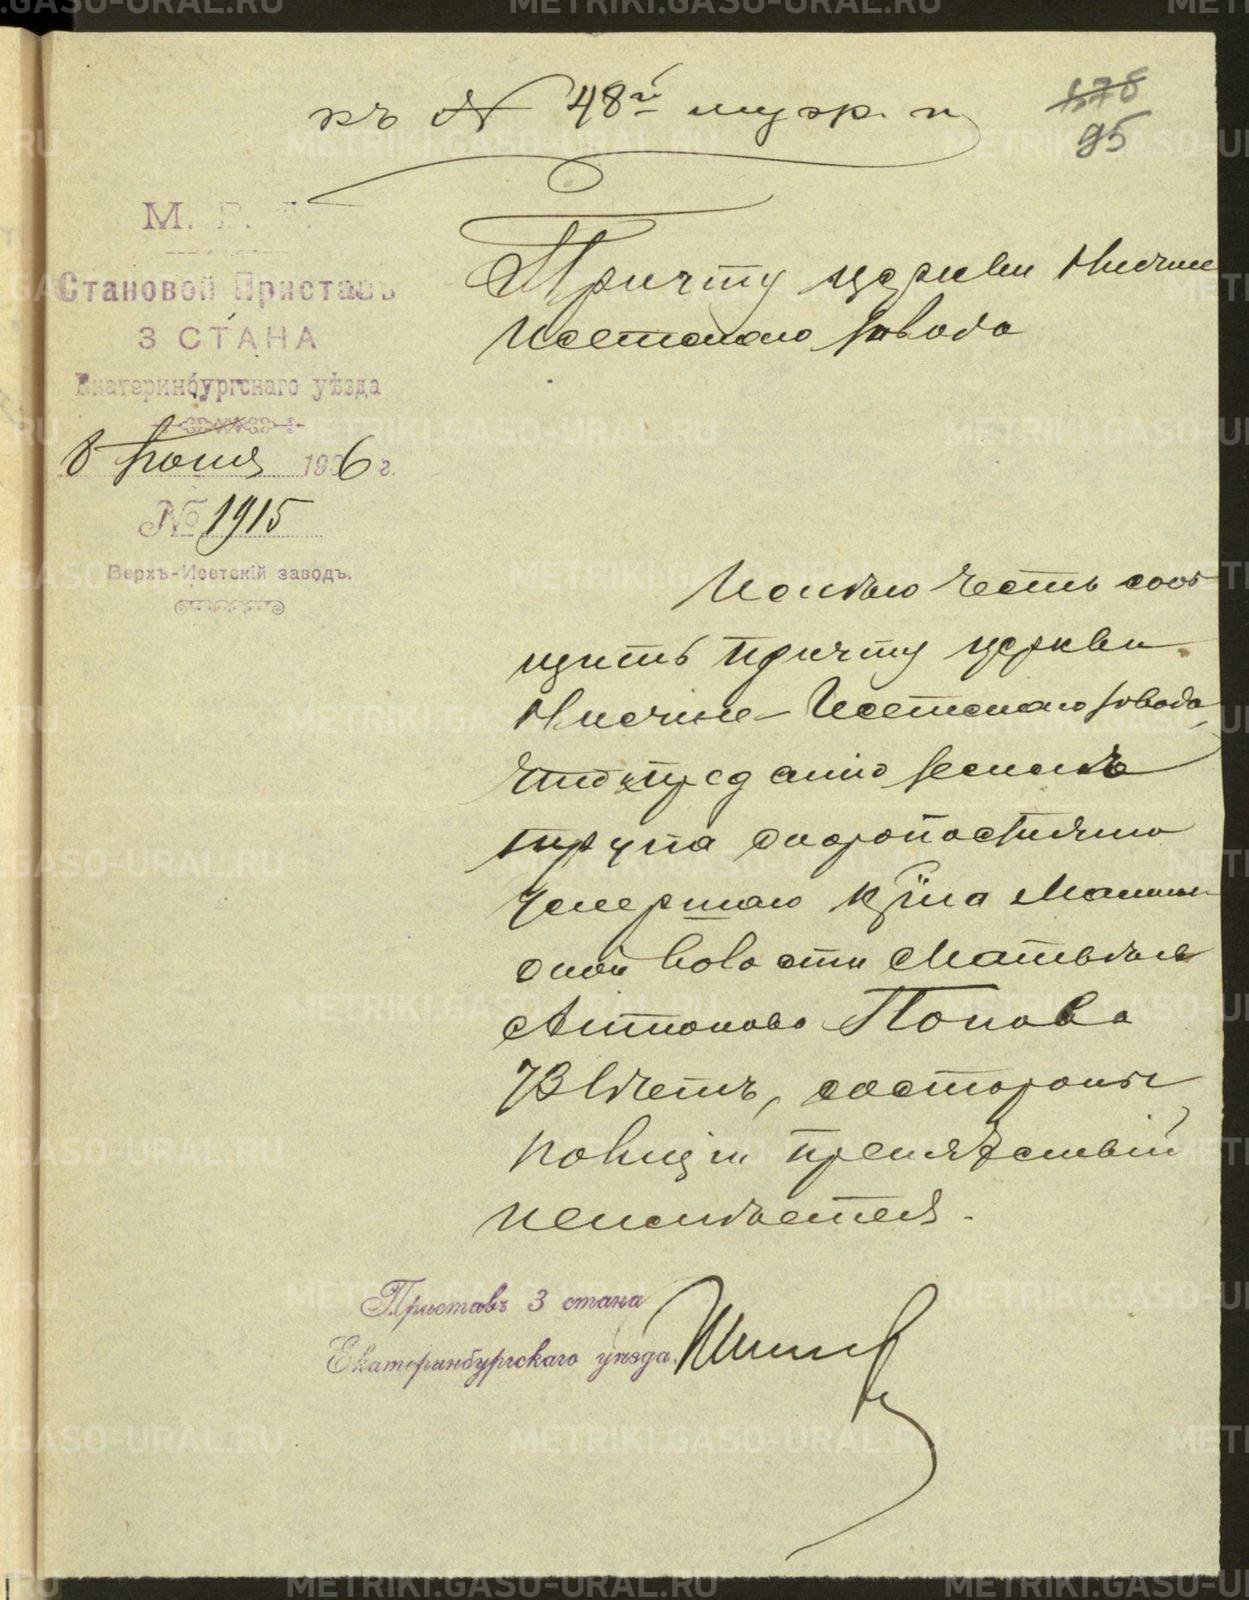 къ № 48й муж. п.
178
95
М. В. Д.
Становой Приставъ
3 СТАНА
Екатеринбургскаго уѣзда
8 Іюня 1906 г.
№ 1915
Верхъ-Исетскій заводъ.
Причту церкви Нижне
Исетскаго завода
Имѣю честь сооб
щить Причту церкви
Нижне-Исетскаго завода,
что къ преданію землѣ
трупа скоропостижно
умершаго кр-на Мамин
ской волости Матвѣя
Антонова Попова
73 лѣтъ, со стороны
полиціи препятствій
неимѣется.
Приставъ 3 стана
Екатеринбургскаго уѣзда,
METRIKI.GASO-URAL.RU